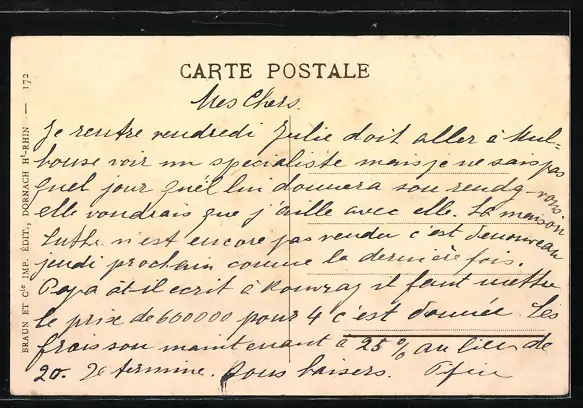 CARTE POSTALE
Mes Chers.
Je rentre vendredi Julie doit aller à Mul-
house voir un spécialiste mais je ne sais pas
quel jour qu'el lui donnera son rendz-vous
elle voudrais que j'aille avec elle. La maison
Luthi n'est encore pas vendu c'est denouveau
jeudi prochain comme la dernière fois.
Papa at-il ecrit à il faut mettre
le prix de 600000 pour 4 c'est donnée. Les
frais son maintenant à 25% au lieu de
20. Je termine. Bons baisers.
BRAUN ET Cie IMP. ÉDIT., DORNACH Ht-RHIN — 172